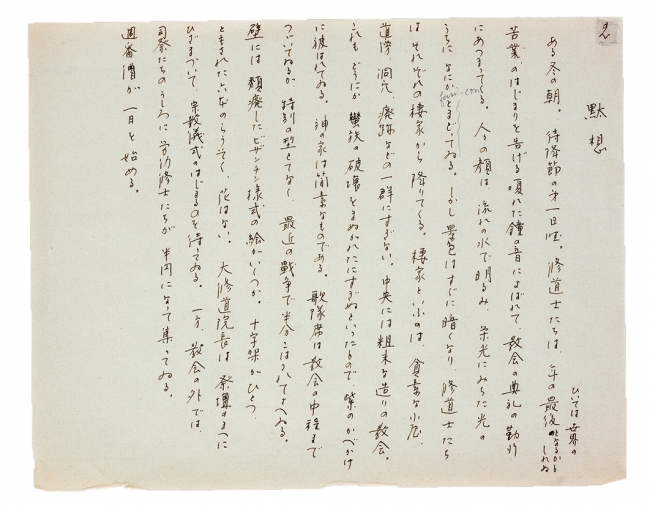 2
默想
ひいては世界の
ある冬の朝。待降節の第一日曜。修道士たちは、年の最後となるかもしれぬ
苦業のはじまりを告げる嗄れた鐘の音によばれて、教会の典礼の勤行
にあつまってくる。人々の顔は、流れの水で明るみ、栄光にみちた光の
うちになにか てゐる。しかし景色はすぐに暗くなり、修道士たち
は、それぞれの棲家から降りてくる。棲家といふのは、貧素な小屋、
道傍の洞穴、廃跡などの一群にすぎない。中央には粗末な造りの教会。
これもどうにか蠻族の破壊をまぬかれたにすぎぬといったもので、紫のかべかけ
に被はれてゐる。神の家は簡素なものである。歌隊席は教会の中程まで
つづいてゐるが、特別の型とてなく、最近の戰争で半分こはされてさへゐる。
壁には頽廃したビザンチン様式の絵がいくつか。十字架がひとつ、
ともされた六本のらうそく、花はない。大修道院長は祭壇のまへに
ひざまづいて、宗教儀式のはじまるのを待ってゐる。一方、教会の外では、
司祭たちのうしろに労働修士たちが半円になって集ってゐる。
週番僧が一日を始める。